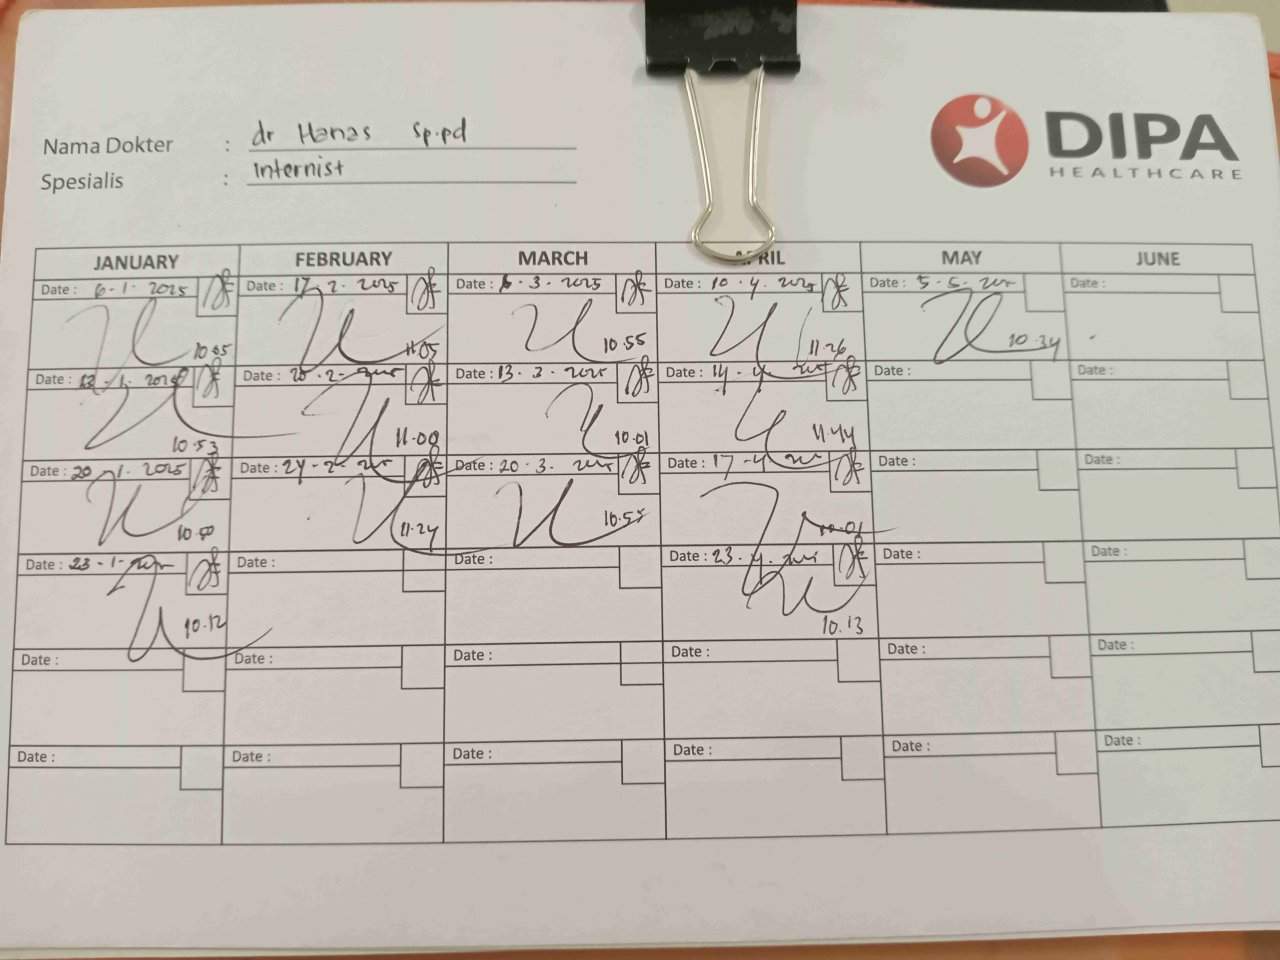 Nama Dokter : dr Hanas Sp.pd
Spesialis : Internist
DIPA
HEALTHCARE
JANUARY FEBRUARY MARCH APRIL MAY JUNE
Date : 6-1-2025 Date : 17-2-2025 Date : 6-3-2025 Date : 10-4-2025 Date : 5-5- Date :
10.05 11.05 10.55 11.26 10.34
Date : -1-2025 Date : 20-2- Date : 13-3-2025 Date : 14-4- Date : Date :
10.53 11.00 10.01 11.44
Date : 20-1-2025 Date : 24-2- Date : 20-3- Date : 17-4- Date : Date :
10.50 11.24 10.55 10.01
Date : 23-1- Date : Date : Date : 23-4- Date : Date :
10.12 10.13
Date : Date : Date : Date : Date : Date :
Date : Date : Date : Date : Date : Date :